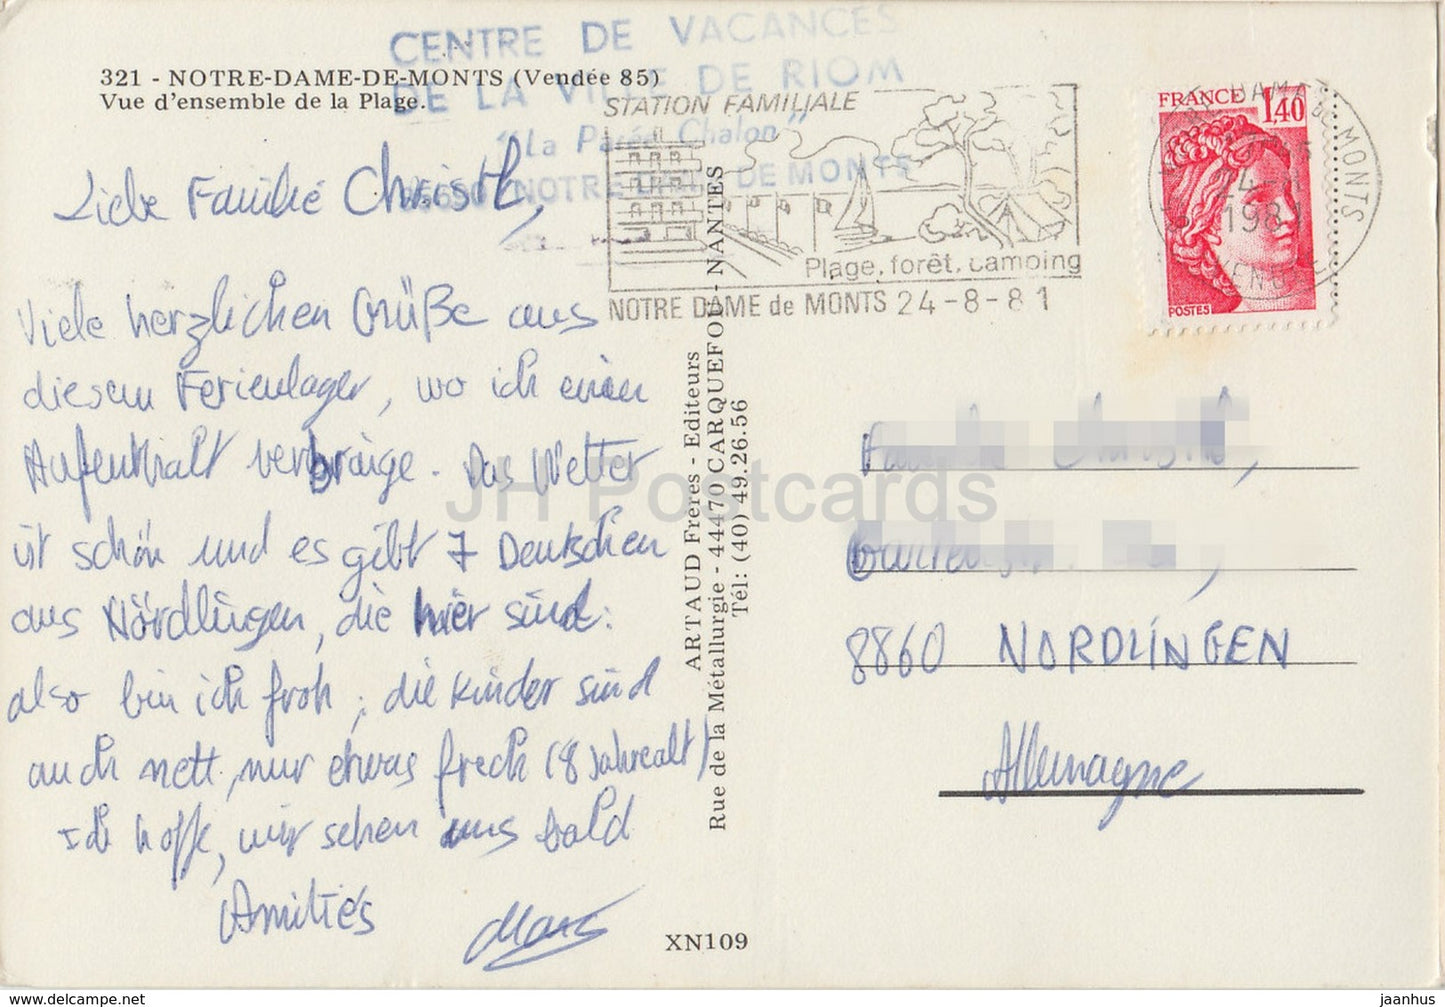 CENTRE DE VACANCES
DE LA VILLE DE RIOM
"La Parée Chalon"
85690 NOTRE DAME DE MONTS
321 - NOTRE-DAME-DE-MONTS (Vendée 85)
Vue d'ensemble de la Plage.
STATION FAMILIALE
Plage, forêt, camping
NOTRE DAME de MONTS 24-8-81
FRANCE 1,40
POSTES
DAME DE MONTS
1981
VENDEE
Liebe Familie Christl,
Viele herzlichen Grüße aus
diesem Ferienlager, wo ich einen
Aufenthalt verbringe. Das Wetter
ist schön und es gibt 7 Deutschen
aus Nördlingen, die hier sind:
also bin ich froh; die Kinder sind
auch nett, nur etwas frech (8 Jahrealt)
Ich hoffe, wir sehen uns bald
Amitiés
ARTAUD Frères - Editeurs
Rue de la Métallurgie - 44470 CARQUEFOU - NANTES
Tél: (40) 49.26.56
XN109
8860 NORDLINGEN
Allemagne
JH Postcards
www.delcampe.net
jaanhus